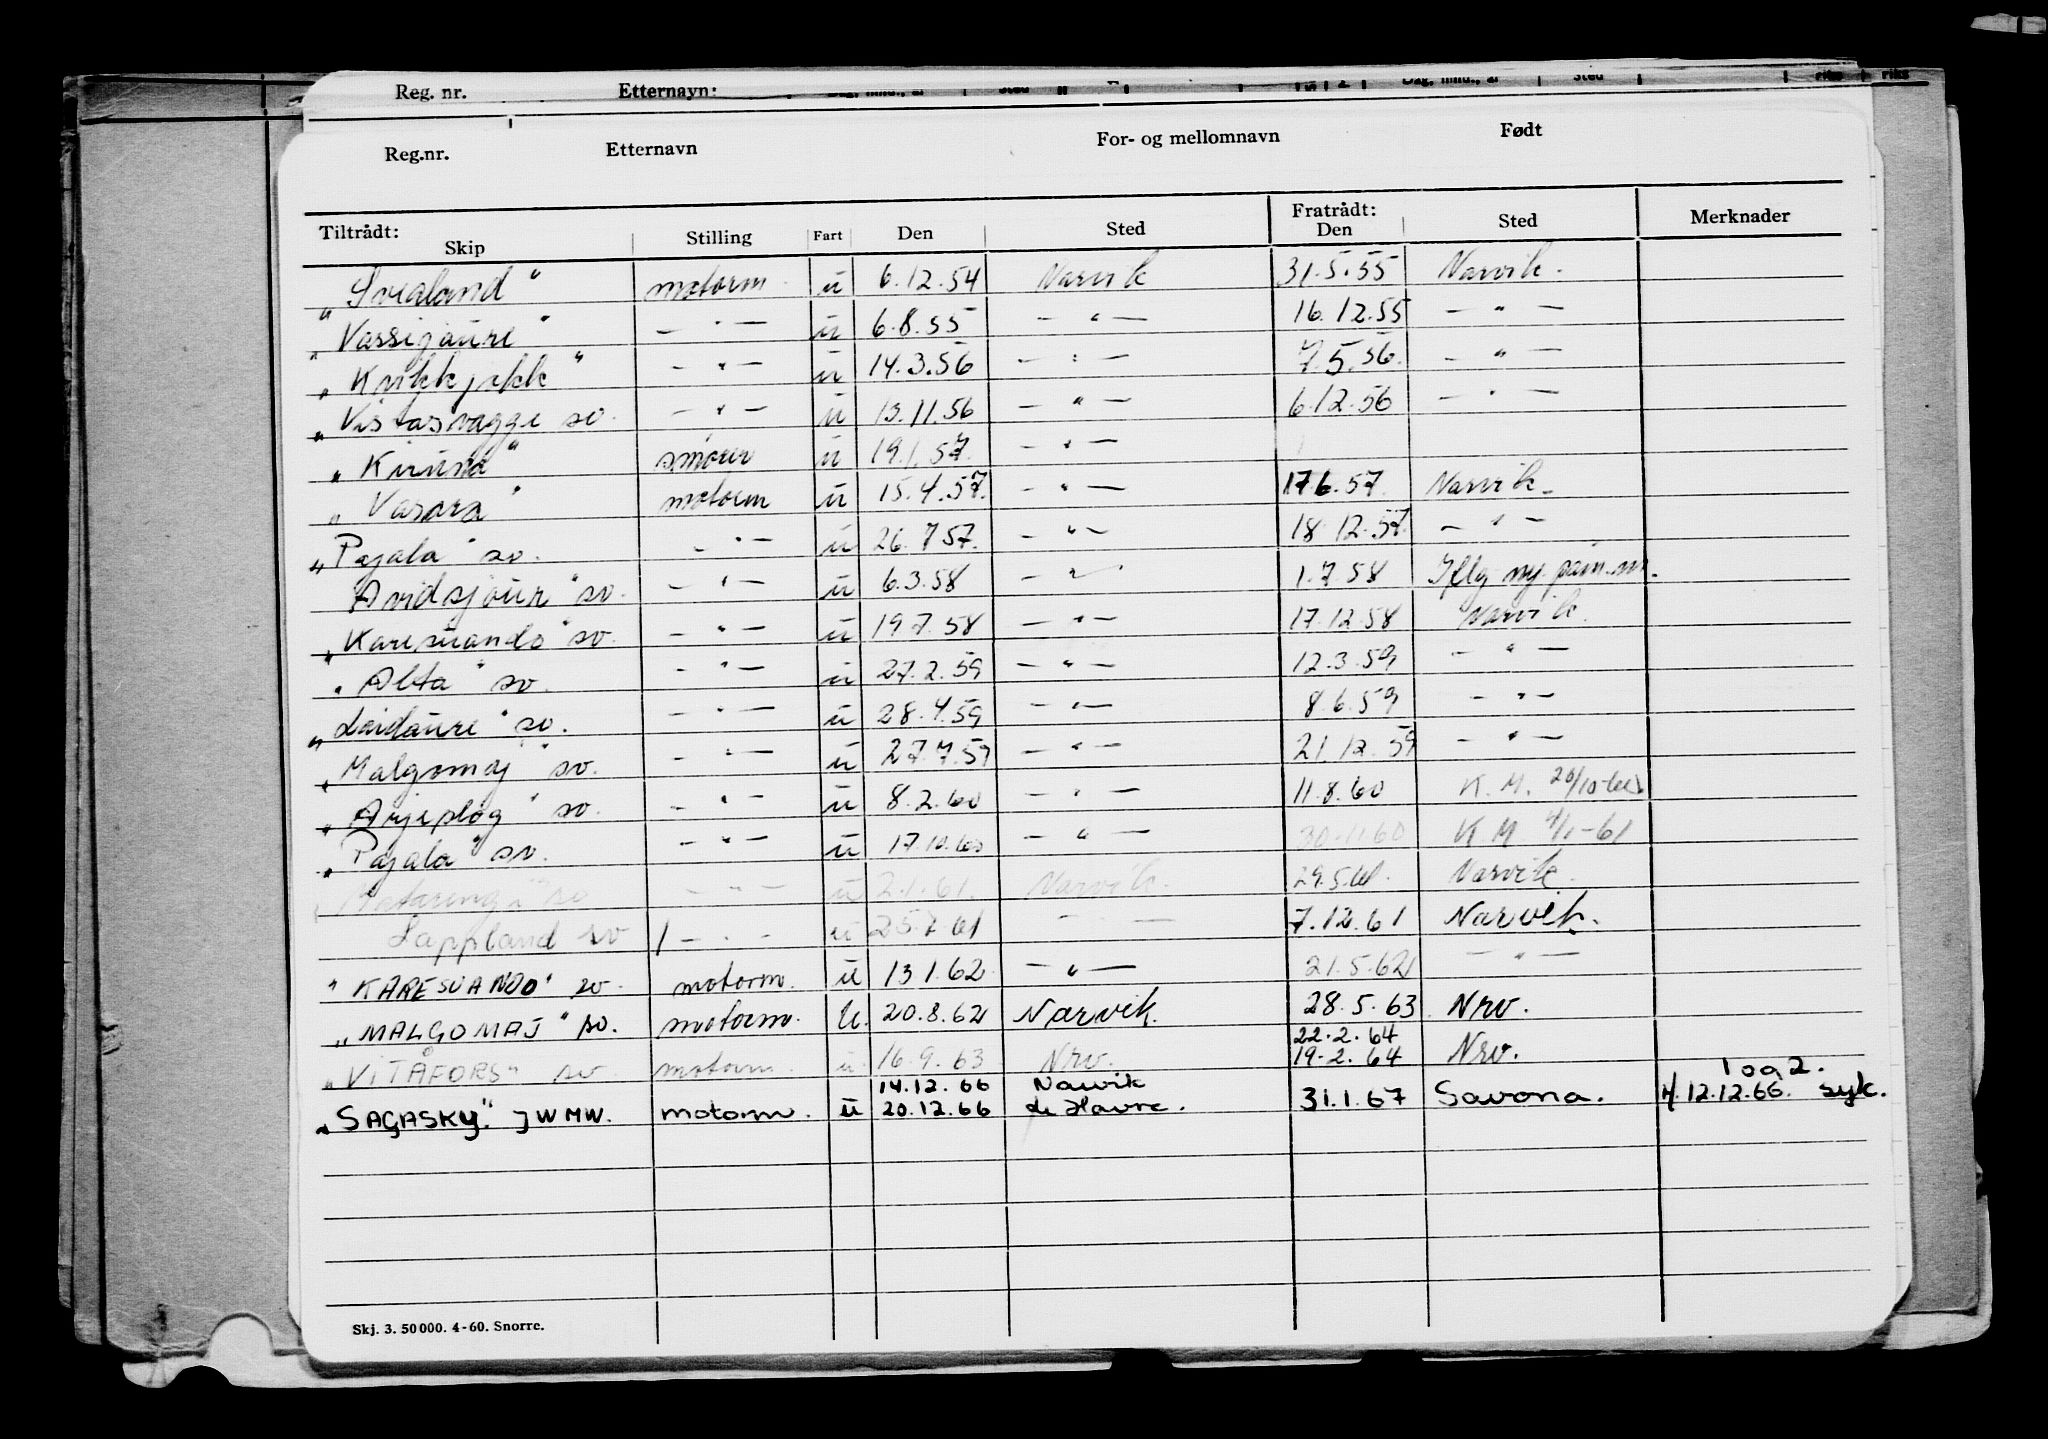 Reg. nr. Etternavn:
Reg.nr. Etternavn For- og mellomnavn Født
Tiltrådt: Skip Stilling Fart Den Sted Fratrådt: Den Sted Merknader
"Svealand" motorm. u 6.12.54 Narvik 31.5.55 Narvik.
"Vassijaure" — " — u 6.8.55 — " — 16.12.55 — " —
"Kvikkjokk" — " — u 14.3.56 — " — 7.5.56. — " —
"Vistasvagge sv. — " — u 13.11.56 — " — 6.12.56 — " —
"Kiruna" smører u 19.1.57. — " —
"Vasara" motorm u 15.4.57. — " — 17.6.57. Narvik.
"Pajala" sv. — " — u 26.7 57. — " — 18 12.57. — " —
Avidsjaur" sv. — " — u 6.3.58 — " — 1.7.58
"Karesuando" sv. — " — u 19.7.58 — " — 17.12.58 Narvik.
"Abta" sv. — " — u 27.2.59 — " — 12.3.59 — " —
"Laidaure" sv. — " — u 28.4.59 — " — 8.6.59 — " —
"Malgomaj" sv. — " — u 27.7.59 — " — 21.12.59 — " —
"Arjeplog" sv. — " — u 8.2.60 — " — 11.8.60 K.M. 20/10-60
"Pajala" sv. — " — u 17.10.60 — " — 30.11.60 K M 4/1-61
sv — " — u 2.1.61. Narvik. 29.5.61. Narvik.
Lappland sv — " — u 25.7 61 — — 7.12.61 Narvik.
"KARESUANDO" sv. motorm. u 13.1.62. — " — 21.5.62 — " —
"MALGOMAJ" sv. motorm. U. 20.8.62 Narvik. 28.5.63. Nrv.
22.2.64
"VITÅFORS" sv. motorm. u. 16.9.63 Nrv. 19.2.64 Nrv.
14.12.66 Narvik 1 og 2.
"SAGASKY". JWMW. motorm. u 20.12.66 le Havre. 31.1.67 Savona. 12.12.66. syk.
Skj. 3. 50000. 4-60. Snorre.